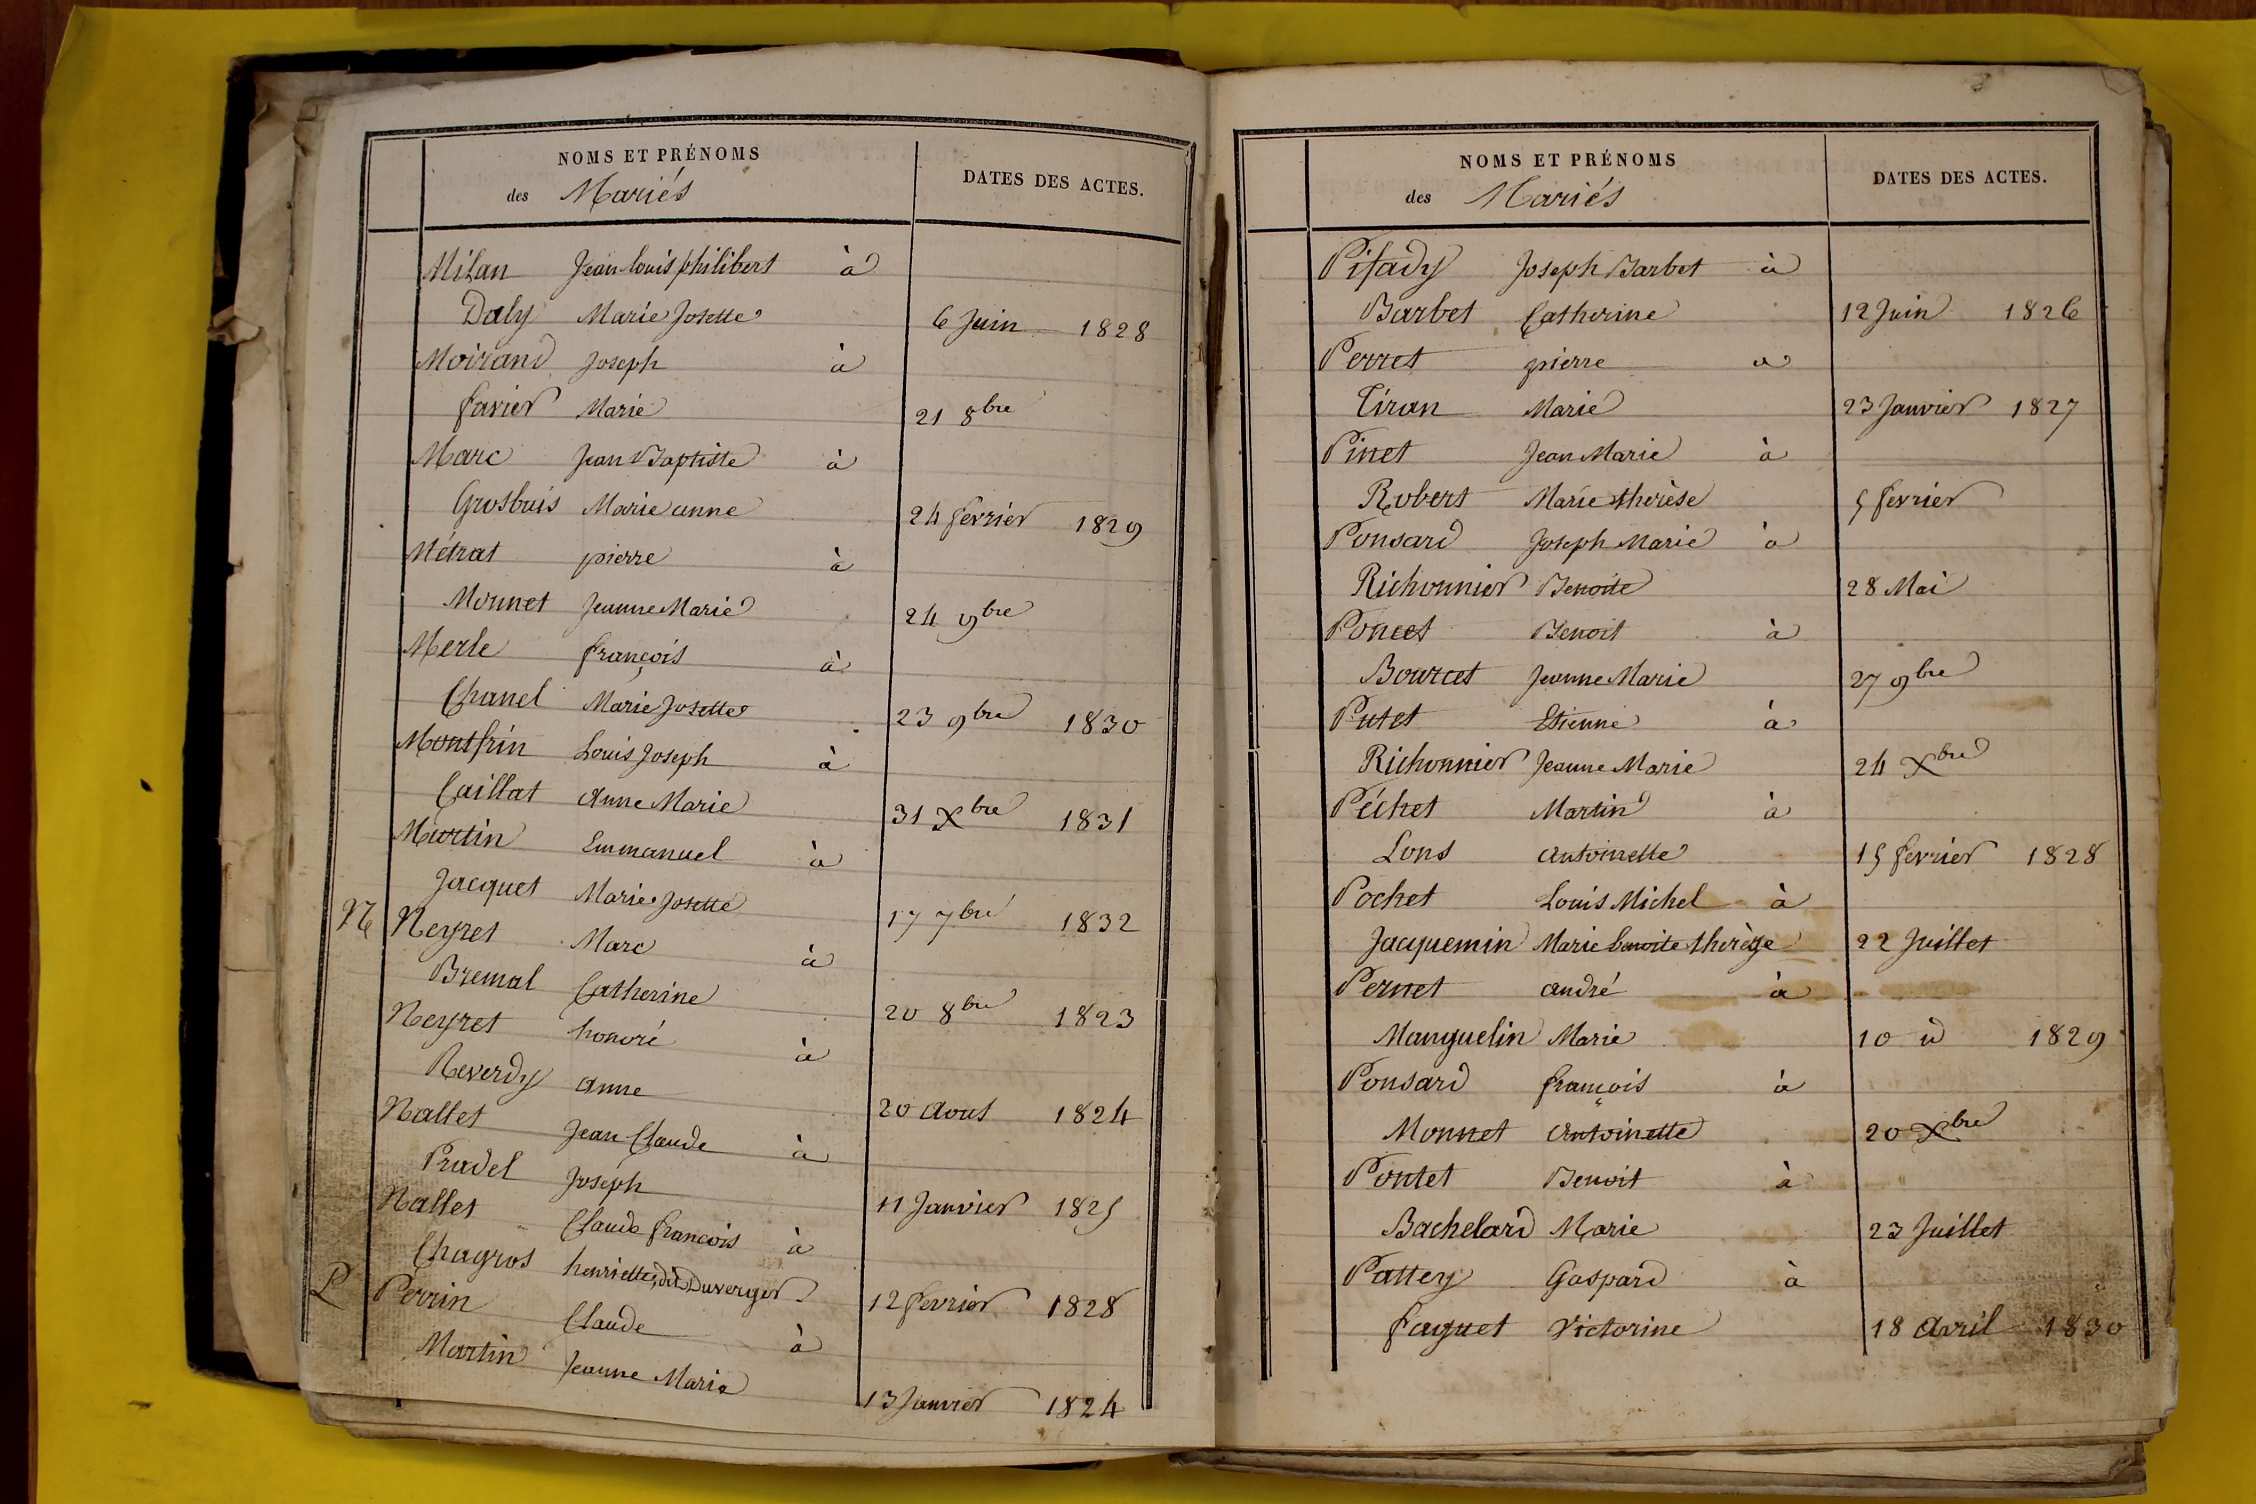 NOMS ET PRÉNOMS
des Mariés
DATES DES ACTES.
Milan Jean louis philibert à
Daly Marie Josette 6 Juin 1828
Moirand Joseph à
favier Marie 21 8bre
Marc Jean Baptiste à
Grosbuis Marie anne 24 fevrier 1829
Métrat pierre à
Monnet Jeanne Marie 24 9bre
Merle françois à
Chanel Marie Josette 23 9bre 1830
Montfrin Louis Joseph à
Caillat Anne Marie 31 Xbre 1831
Martin Emmanuel à
Jacquet Marie Josette 17 7bre 1832
N Neyret Marc à
Bremal Catherine 20 8bre 1823
Neyret honoré à
Reverdy anne 20 Aout 1824
Nallet Jean Claude à
Pradel Joséph 11 Janvier 1825
Nallet Claude françois à
Chagros henriette, dit Duverger 12 fevrier 1828
P Perrin Claude à
Martin Jeanne Marie 13 Janvier 1824
NOMS ET PRÉNOMS
des Mariés
DATES DES ACTES.
Pisady Joseph Barbet à
Barbet Catherine 12 Juin 1826
Perret pierre a
Tiran Marie 23 Janvier 1827
Pinet Jean Marie à
Robert Marie thérèse 5 fevrier
Ponsard Joseph Marie à
Richonnier Benoite 28 Mai
Poncet Benoit à
Bourcet Jeanne Marie 27 9bre
Putet Etienne à
Richonnier Jeanne Marie 24 Xbre
Péchet Martin à
Lons antoinette 15 fevrier 1828
Pochet Louis Michel à
Jacquemin Marie benoite therèse 22 Juillet
Pernet andré à
Manguelin Marie 10 id 1829
Ponsard françois à
Monnet Antoinette 20 Xbre
Pontet Benoit à
Bachelard Marie 23 Juillet
Pattey Gaspard à
faguet Victorine 18 Avril 1830